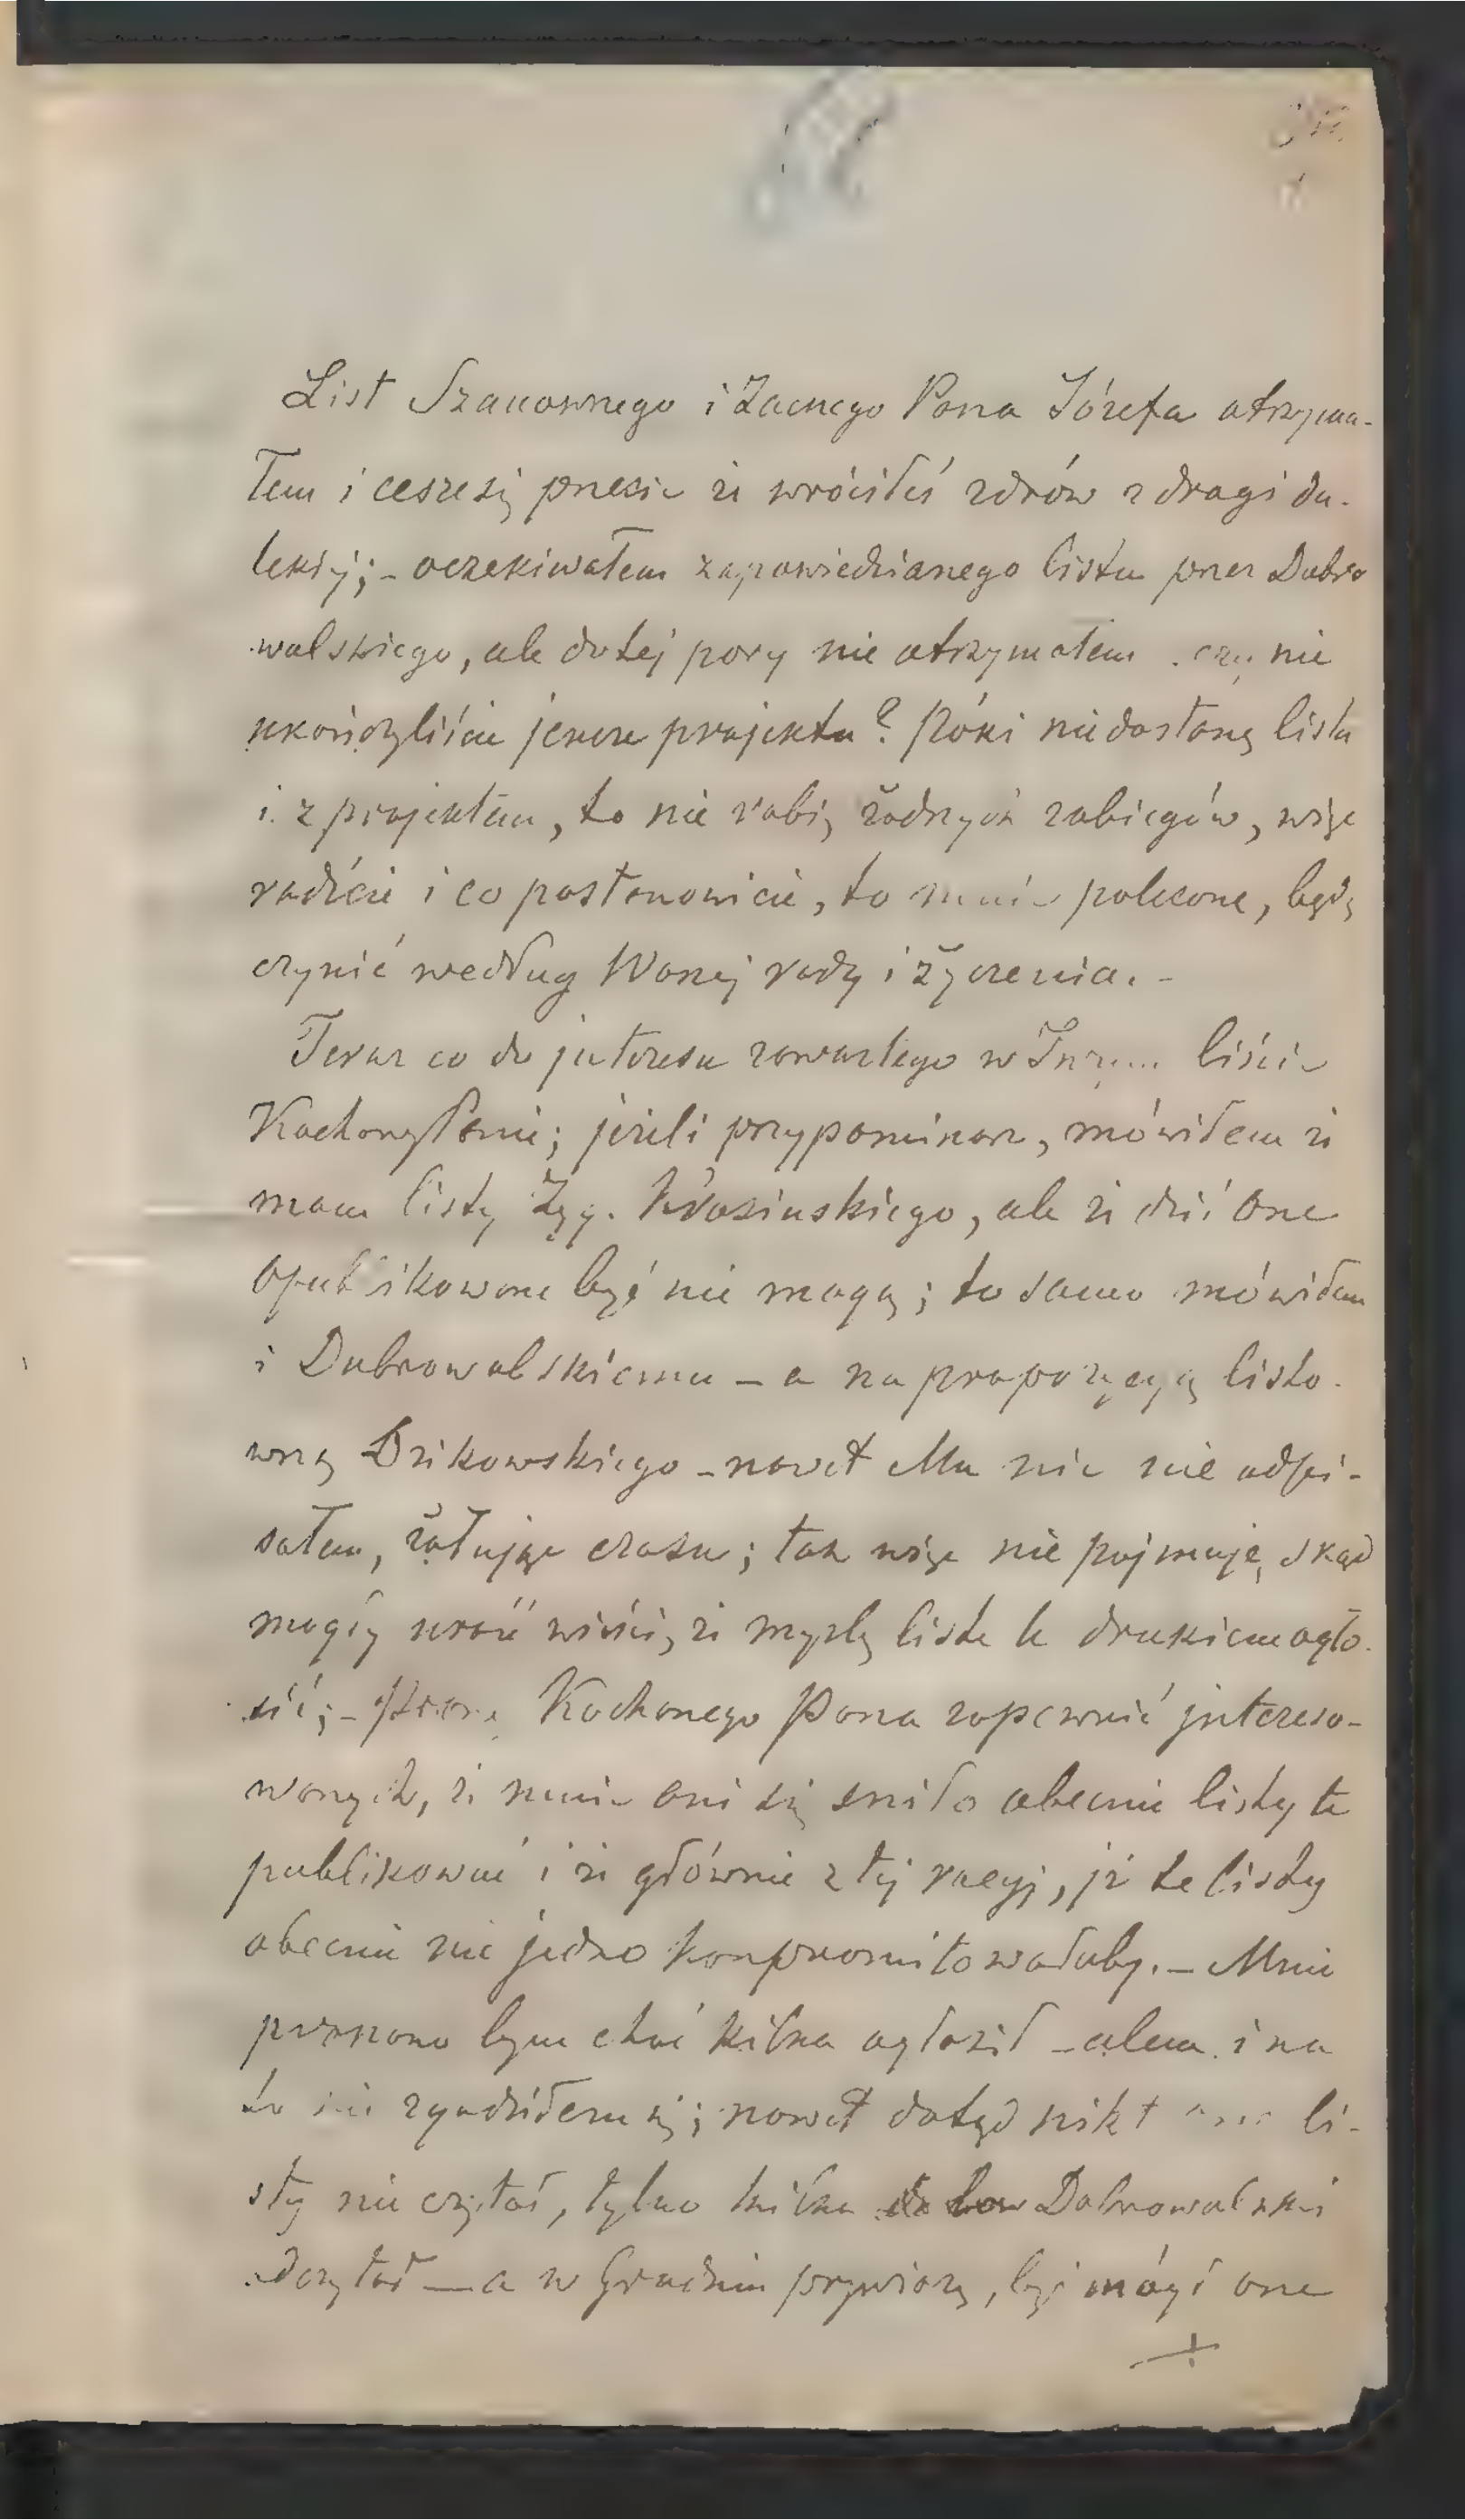 List Szanownego i Zacnego Pana Józefa otrzyma-
łem i cieszę się że wróciłeś zdrów z drogi da-
lekiéj; - oczekiwałem zapowiedzianego listu przez Dubro
walskiego, ale dotej pory nie otrzymałem . czy nie
ukończyliście jeszcze projektu? Póki niedostanę listu
i z projektem, to nie robię żadnych zabiegów, więc
radźcie i co postanowicie, to mnie polecone, będę
czynić według Waszej rady i życzenia. -
Teraz co do jnteresu zawartego w liście
Kochany Panie; jeżeli przypominasz, mówiłem że
mam listy Zyg. Krasinskiego, ale że dziś one
opublikowane być nie mogą; to samo mówiłem
i Dubrowolskiemu - a na propozycyą listo-
wną Dzikowskiego - nawet Mu nic nie odpi-
sałem, żałując czasu; tak więc nie pojmuję, skąd
mogły urość wieści, że myślę listy te drukiem ogło-
sić; - Proszę Kochanego Pana zapewnić jntereso-
wanych, że mnie ani się śniło obecnie listy te
publikować i że głównie z téj racyj, jż te listy
obecnie nie jedno kompromitowałyby. - Mnie
proszono bym choć kilka ogłosił - alem i na
to nie zgodziłem się; nawet dotąd nikt li-
sty nie czytał, tylko kilka Dobrowolski
czytał — a w Grudniu przywiozę, byś mógł one